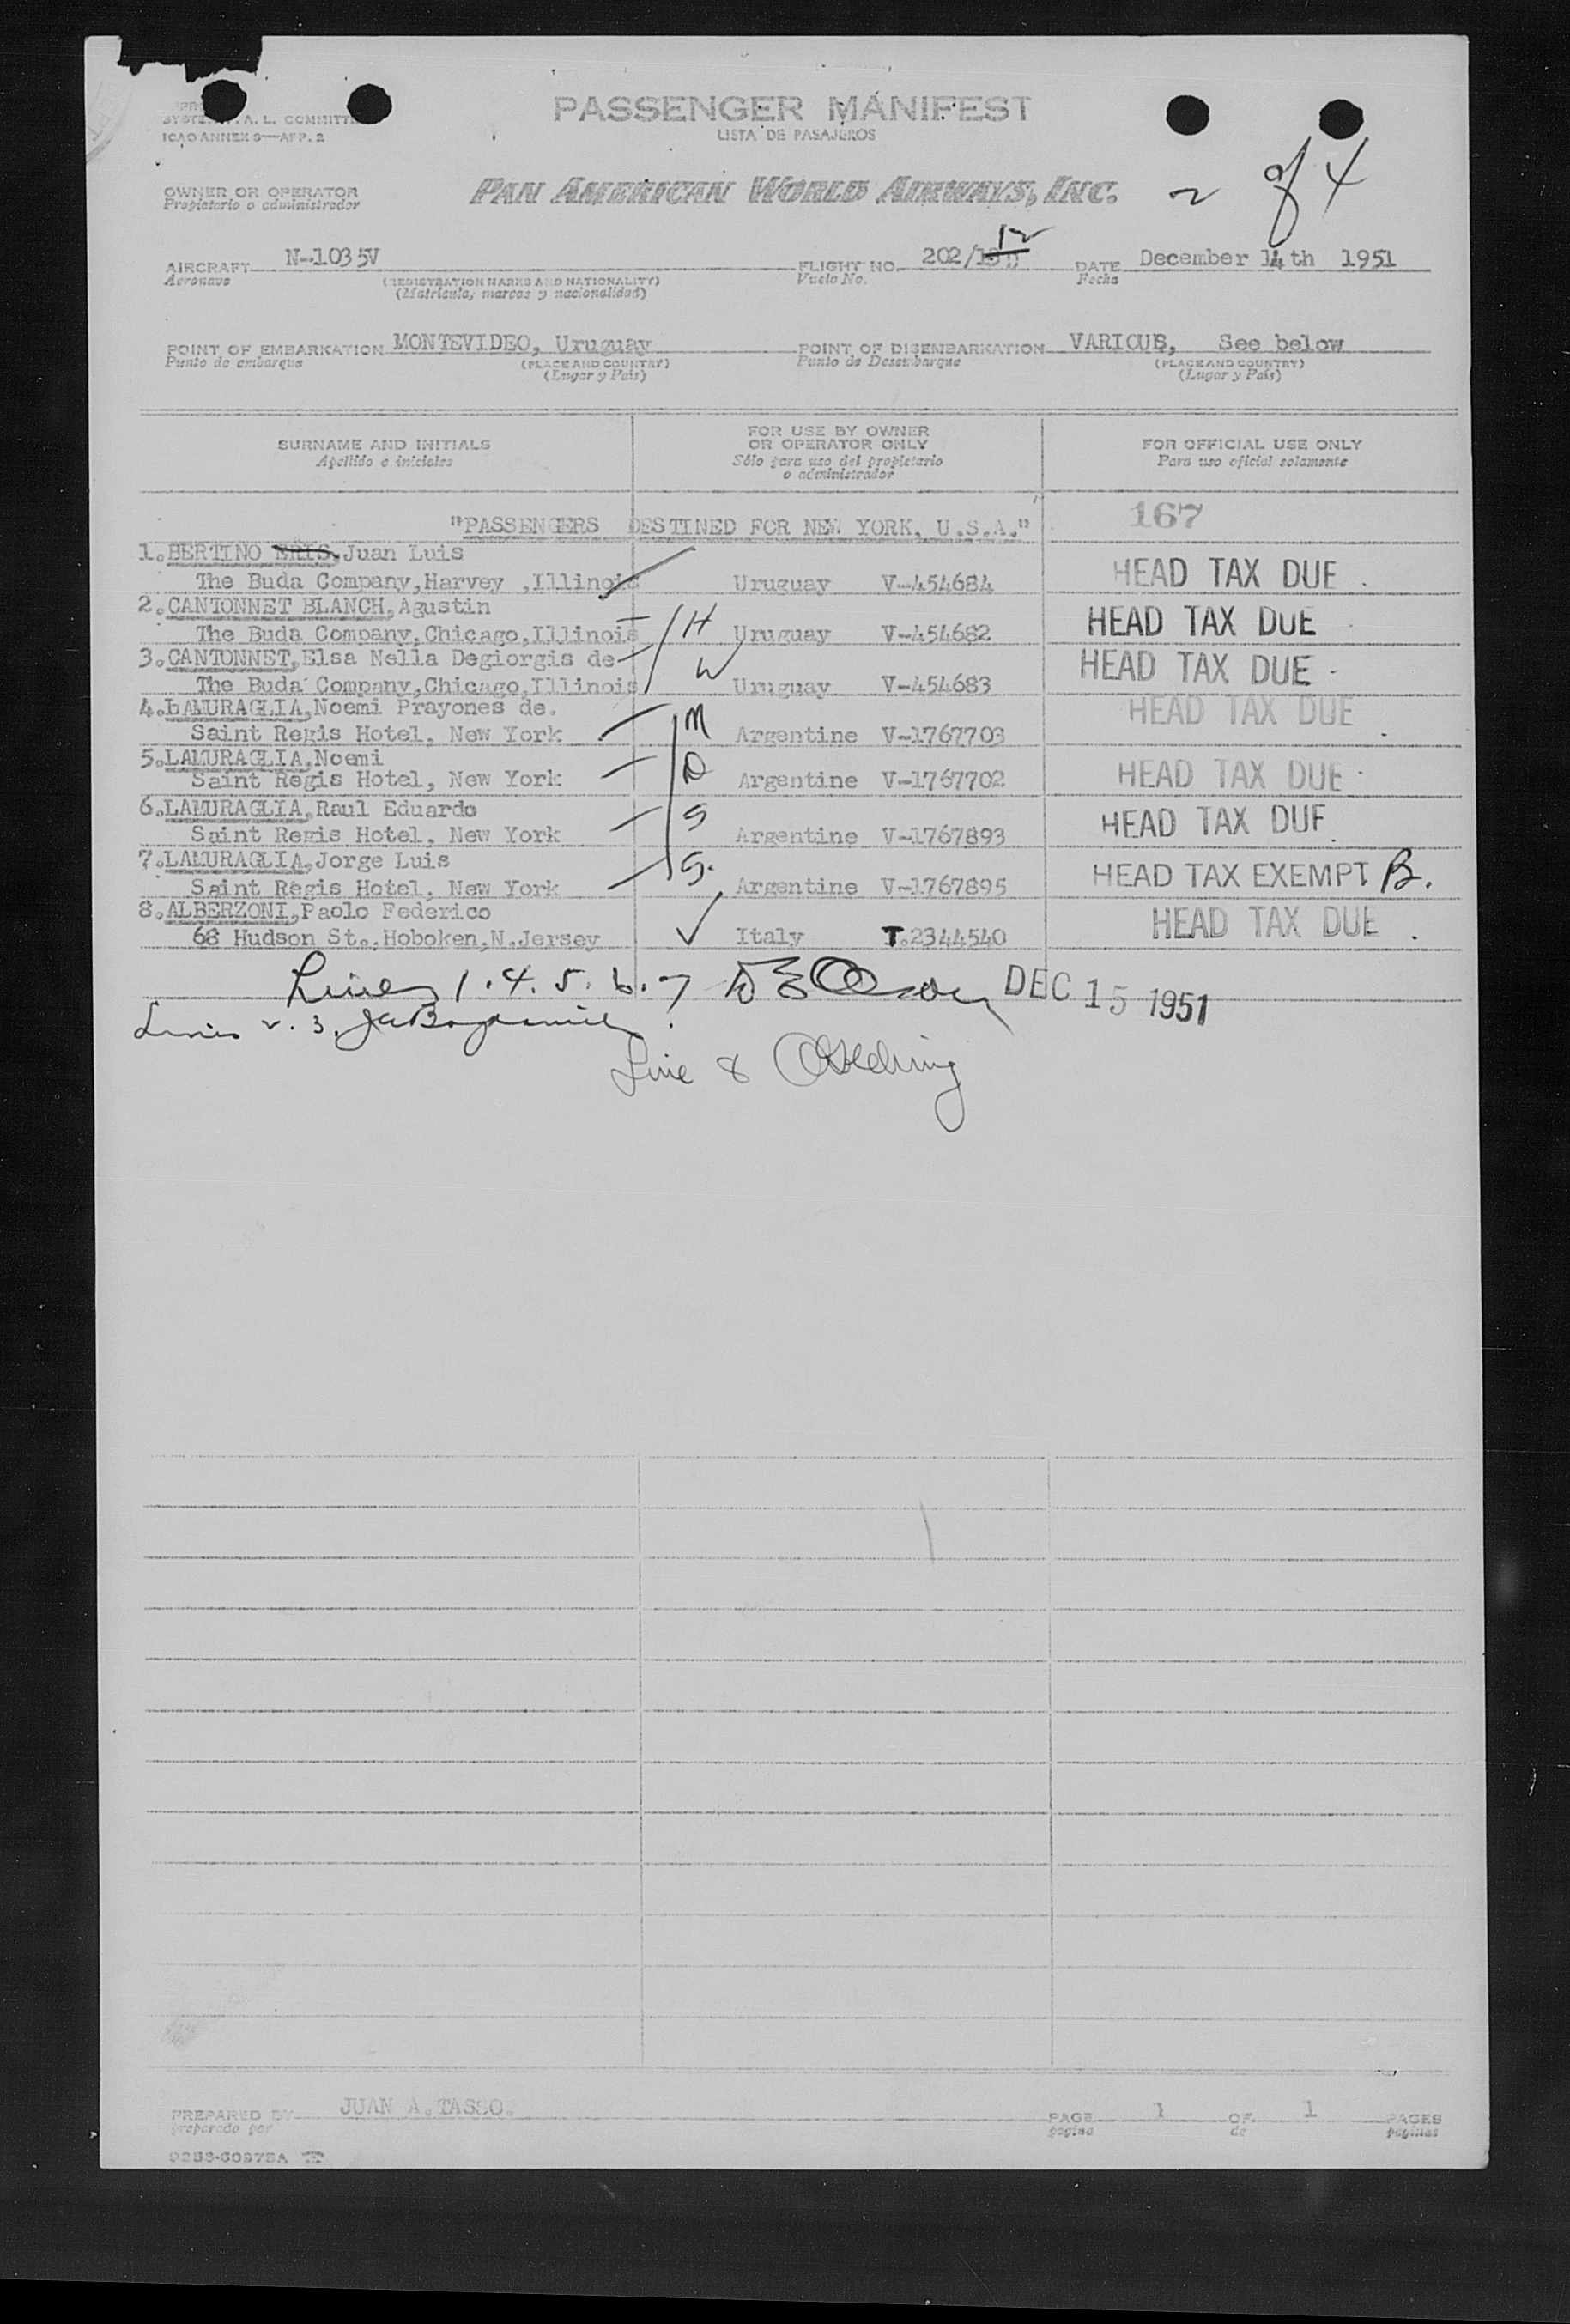 A. L. COMMITT
ICAO ANNEX 9—APP. 2
PASSENGER MANIFEST
LISTA DE PASAJEROS
OWNER OR OPERATOR
Propietario o administrador
PAN AMERICAN WORLD AIRWAYS, INC.
2 of 4
AIRCRAFT N-1035V
Aeronave
(REGISTRATION MARKS AND NATIONALITY)
(Matricula, marcas y nacionalidad)
FLIGHT NO. 202/ 12
Vuelo No.
DATE December 14th 1951
Fecha
POINT OF EMBARKATION MONTEVIDEO, Uruguay
Punto de embarque
(PLACE AND COUNTRY)
(Lugar y País)
POINT OF DISEMBARKATION VARIOUS, See below
Punto de Desembarque
(PLACE AND COUNTRY)
(Lugar y País)
SURNAME AND INITIALS
Apellido e iniciales
FOR USE BY OWNER
OR OPERATOR ONLY
Sólo para uso del propietario
o administrador
FOR OFFICIAL USE ONLY
Para uso oficial solamente
"PASSENGERS DESTINED FOR NEW YORK, U.S.A." 167
1.BERTINO Juan Luis
The Buda Company,Harvey ,Illinois Uruguay V-454684 HEAD TAX DUE
2.CANTONNET BLANCH,Agustin
The Buda Company,Chicago,Illinois H Uruguay V-454682 HEAD TAX DUE
3.CANTONNET,Elsa Nella Degiorgis de
The Buda Company,Chicago,Illinois W Uruguay V-454683 HEAD TAX DUE
4.LAMURAGLIA,Noemi Prayones de.
Saint Regis Hotel, New York M Argentine V-1767703 HEAD TAX DUE
5.LAMURAGLIA,Noemi
Saint Regis Hotel, New York D Argentine V-1767702 HEAD TAX DUE
6.LAMURAGLIA,Raul Eduardo
Saint Regis Hotel, New York S Argentine V-1767893 HEAD TAX DUE
7.LAMURAGLIA,Jorge Luis
Saint Regis Hotel, New York S. Argentine V-1767895 HEAD TAX EXEMPT B.
8.ALBERZONI,Paolo Federico
68 Hudson St.,Hoboken,N.Jersey Italy T.2344540 HEAD TAX DUE
Lines 1.4.5.6.7 DEC 15 1951
Lines 2.3.
Line 8
PREPARED BY JUAN A.TASSO.
preparado por
PAGE 1 OF 1 PAGES
página de páginas